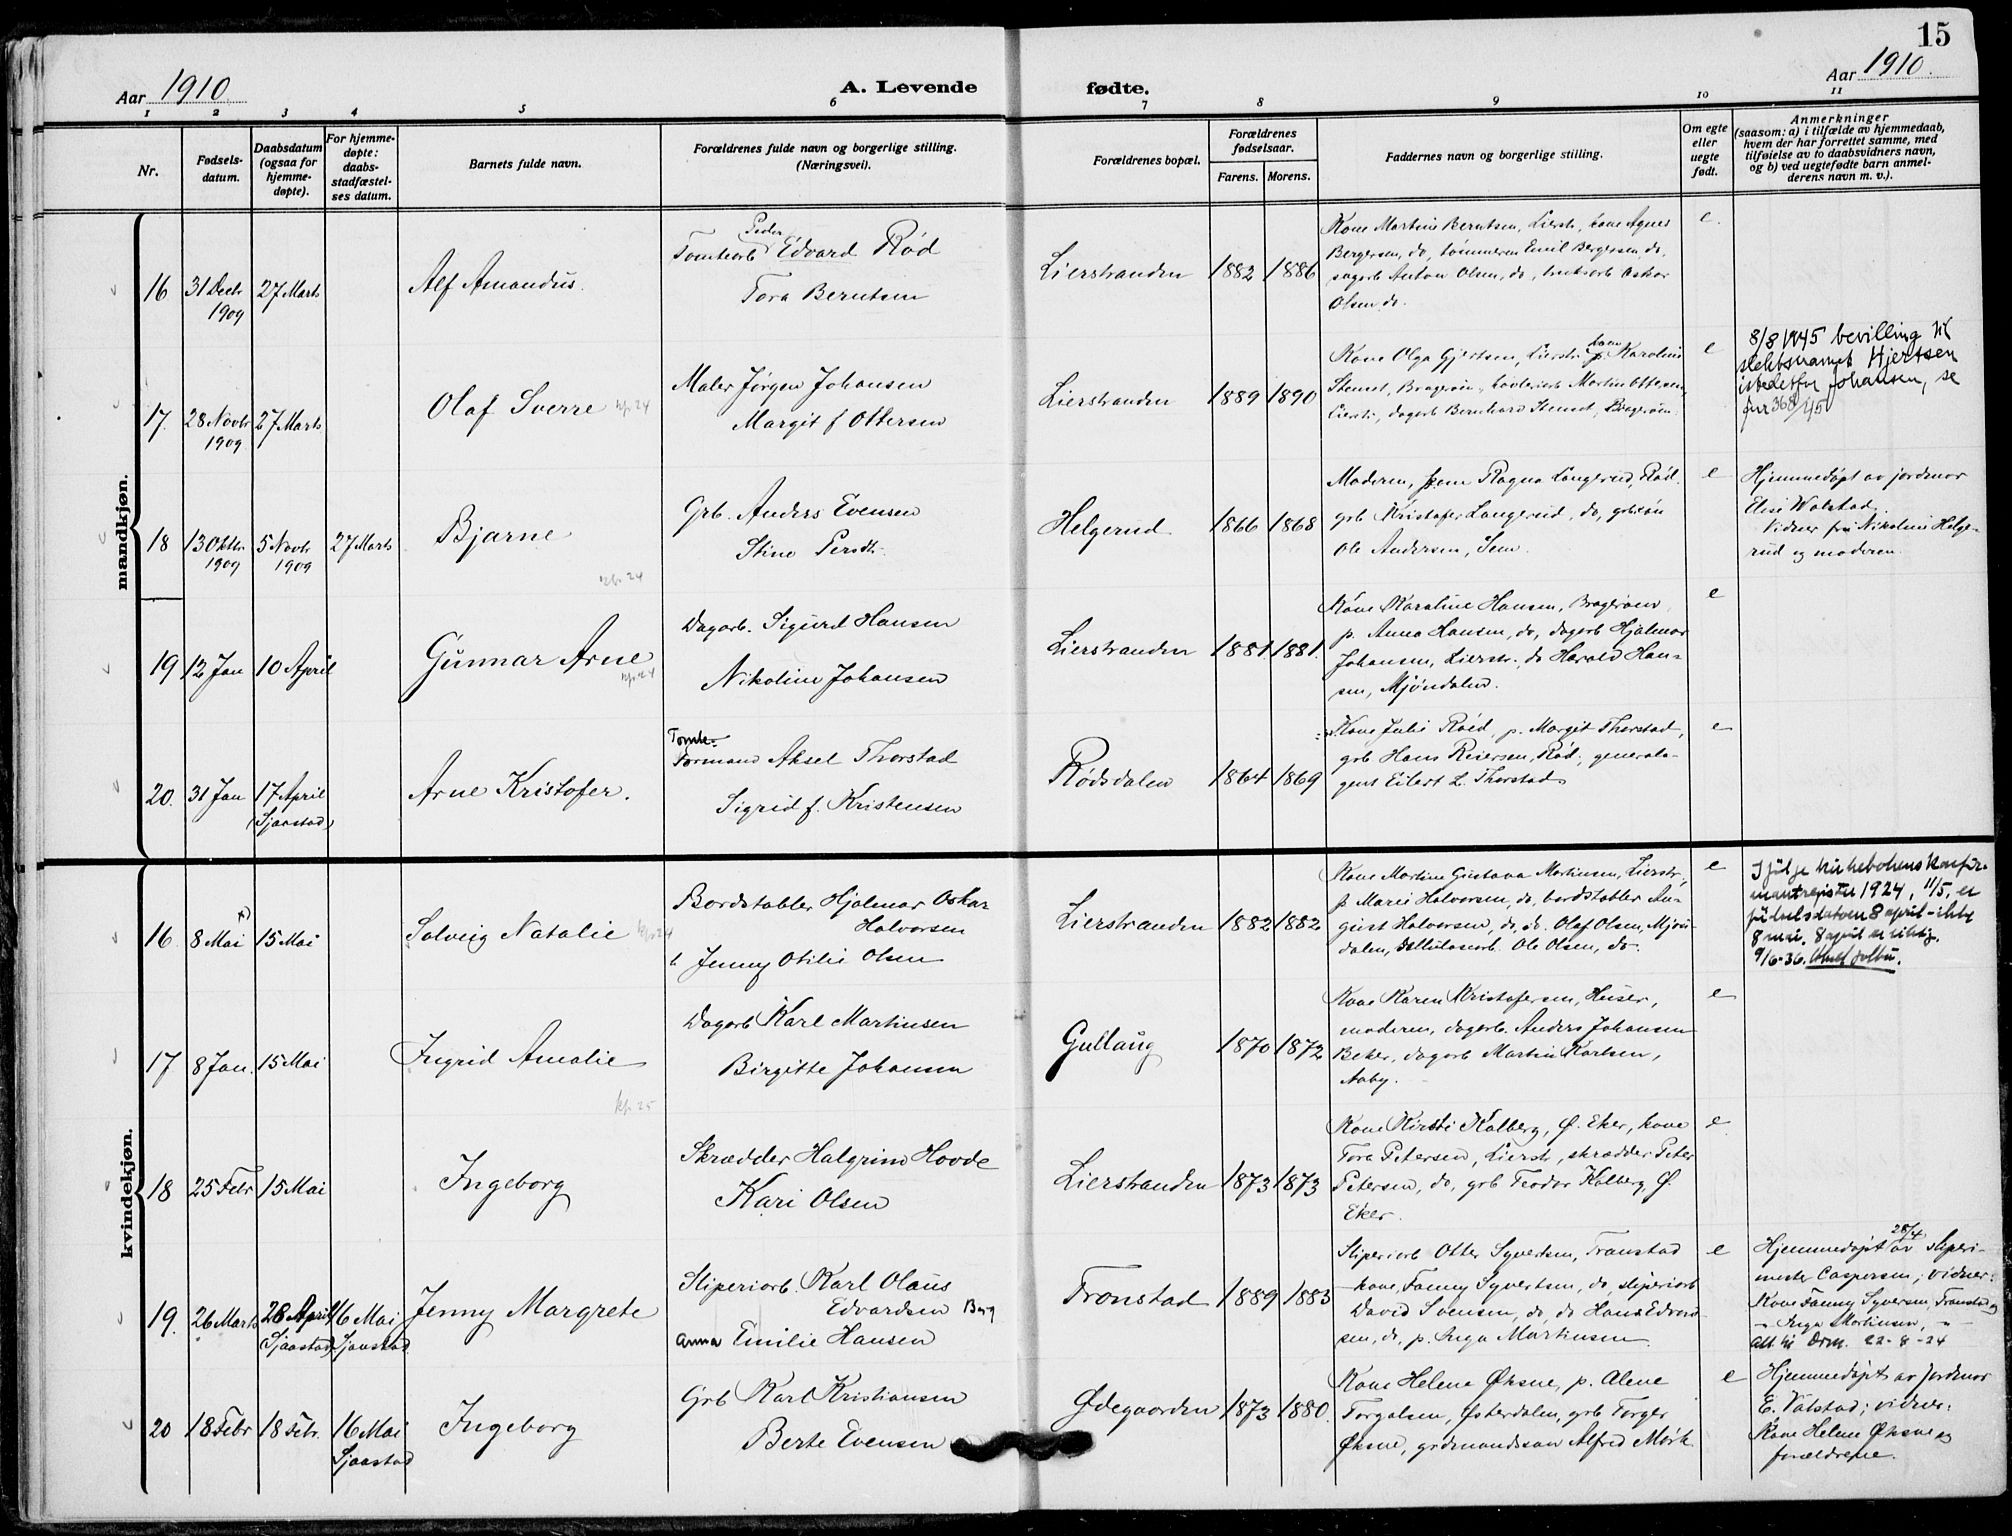 15
Aar 1910
A. Levende
fødte.
Aar 1910.
1 2 3 4 5 6 7 8 9 10 11
Nr.
Fødsels-
datum.
Daabsdatum
(ogsaa for
hjemme-
døpte).
For hjemme-
døpte:
daabs-
stadfæstel-
ses datum.
Barnets fulde navn.
Forældrenes fulde navn og borgerlige stilling.
(Næringsvei).
Forældrenes bopæl.
Forældrenes
fødselsaar.
Farens. Morens.
Faddernes navn og borgerlige stilling.
Om egte
eller
uegte
født.
Anmerkninger
(saasom: a) i tilfælde av hjemmedaab,
hvem der har forrettet samme, med
tilføielse av to daabsvidners navn,
og b) ved uegtefødte barn anmel-
derens navn m. v.).
mandkjøn.
16
31 Decbr
1909
27 Marts
Alf Amandus.
Peder
Tomtearb Edvard Rød
Tora Berntsen
Lierstranden
1882 1886
Kone Martine Berntsen, Lierstr, kone Agnes
Bergersen, do, tømmerm Emil Bergersen, do,
sagarb Anton Olsen, do, bruksarb Oskar
Olsen do.
e.
17.
28 Novbr
1909
27 Marts
Olaf Sverre kfr 24
Maler Jørgen Johansen
Margit f Ottersen
Lierstranden
1889 1890
Kone Olga Gjertsen, Lierstr. kone Karoline
Stenset, Bragerøen, Martin Ottersen,
Lierstr, dagarb Bernhard Stenset, Bragerøen.
e
8/8 1945 bevilling til
slektsnamnet Hjertsen
istedetfor Johansen, se
jnr 368/45
18
13 Oktbr
1909
5 Novbr
1909
27 Marts
Bjarne
kfr. 24
Grb. Anders Evensen
Stine Persdtr.
Helgerud
1866 1868
Moderen, pigen Ragna Langerud, Rød
grb Kristofer Langerud, do, grbsøn
Ole Andersen, Sem.
e
Hjemmedøpt av jordmor
Elise Walstad.
Vidner fru Nikoline Helge-
rud og moderen.
19
12 Jan
10 April
Gunnar Arne
kfr. 24
Dagarb. Sigurd Hansen
Nikoline Johansen
Lierstranden
1881 1881.
Kone Karoline Hansen, Bragerøen,
p. Anna Hansen, do, dagarb Hjalmar
Johansen, Lierstr., do Harald Han-
sen, Mjøndalen.
e
20.
31 Jan
17 April
(Sjaastad)
Arne Kristofer.
Tomte-
Formand Aksel Thorstad
Sigrid f. Kristensen
Rødsdalen
1864 1869
Kone Julie Røed, p. Margit Thorstad,
grb Hans Reiersen, Rød, generala-
gent Eilert L. Thorstad
e
kvindekjøn.
16.
8 Mai x)
15 Mai
Solveig Natalie kfr 24
Bordstabler Hjalmar Oskar
Halvorsen
Jenny Otilie Olsen
Lierstranden
1882 1882
Kone Martine Gustava Martinsen, Lierstr,
p Marie Halvorsen, do, bordstabler Au-
gust Halvorsen, do, do. Olaf Olsen, Mjøn-
dalen, Cellulosearb. Ole Olsen, do.
e
Ifølge kirkebokens konfir-
mantregister 1924, 11/5, er
fødselsdatoen 8 april - ikke
8 mai. 8 april er riktig.
9/6-36.
17
8 Jan.
15 Mai
Ingrid Amalie
kfr. 25
Dagarb Karl Martinsen
Birgitte Johansen
Gullaug
1870 1872
Kone Karen Kristofersen, Huser,
moderen, dagarb. Anders Johansen
Beker, dagarb Martin Karlsen,
Aaby.
e
18
25 Febr
15 Mai
Ingeborg
Skrædder Halgrim Hovde
Kari Olsen
Lierstranden
1873 1873
Kone Kirsti Kolberg, Ø. Eker, kone
Tora Petersen, Lierstr, skrædder Peter
Petersen, do, grb Teodor Kolberg, Ø.
Eker.
e
19.
26 Marts
28 April
Sjaastad
16 Mai
Sjaastad
Jenny Margrete
Sliperiarb. Karl Olaus
Edvardsen Berg
Anna Emilie Hansen
Tronstad
1889 1883
Sliperiarb Otter Syvertsen, Transtad
kone Fanny Syvertsen, do, sliperiarb
David Svensen, do, do Hans Edvard-
sen, do, p. Inga Martinsen
e
28/4
Hjemmedøpt av sliperi-
mester Caspersen; vidner:
Kone Fanny Syversen, Transtad og
" Inga Martinsen, "
Att til Drm. 22-8-24
20
18 Febr
18 Febr.
16 Mai
Sjaastad
Ingeborg
Grb Karl Kristiansen
Berte Evensen
Ødegaarden
1873 1880.
Kone Helene Øksne, p. Alene
Torgalsen, Østerdalen, grb Torger
Øksne, grdmandssøn Alfred Mørk
e
Hjemmedøpt av Jordmor
E. Valstad; vidner:
Kone Helene Øksne og
forældrene.